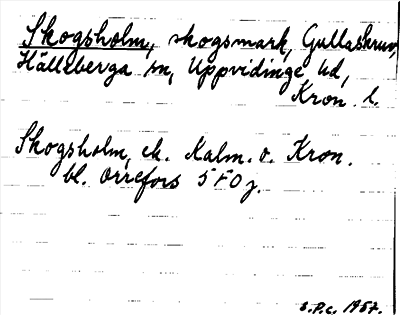 Skogsholm, skogsmark, Gullaskruv,
Hälleberga sn, Uppvidinge hd,
Kron. l.
Skogsholm, ek. Kalm. o. Kron.
bl. Orrefors 5 F 0 j.
S.P.C. 1957.